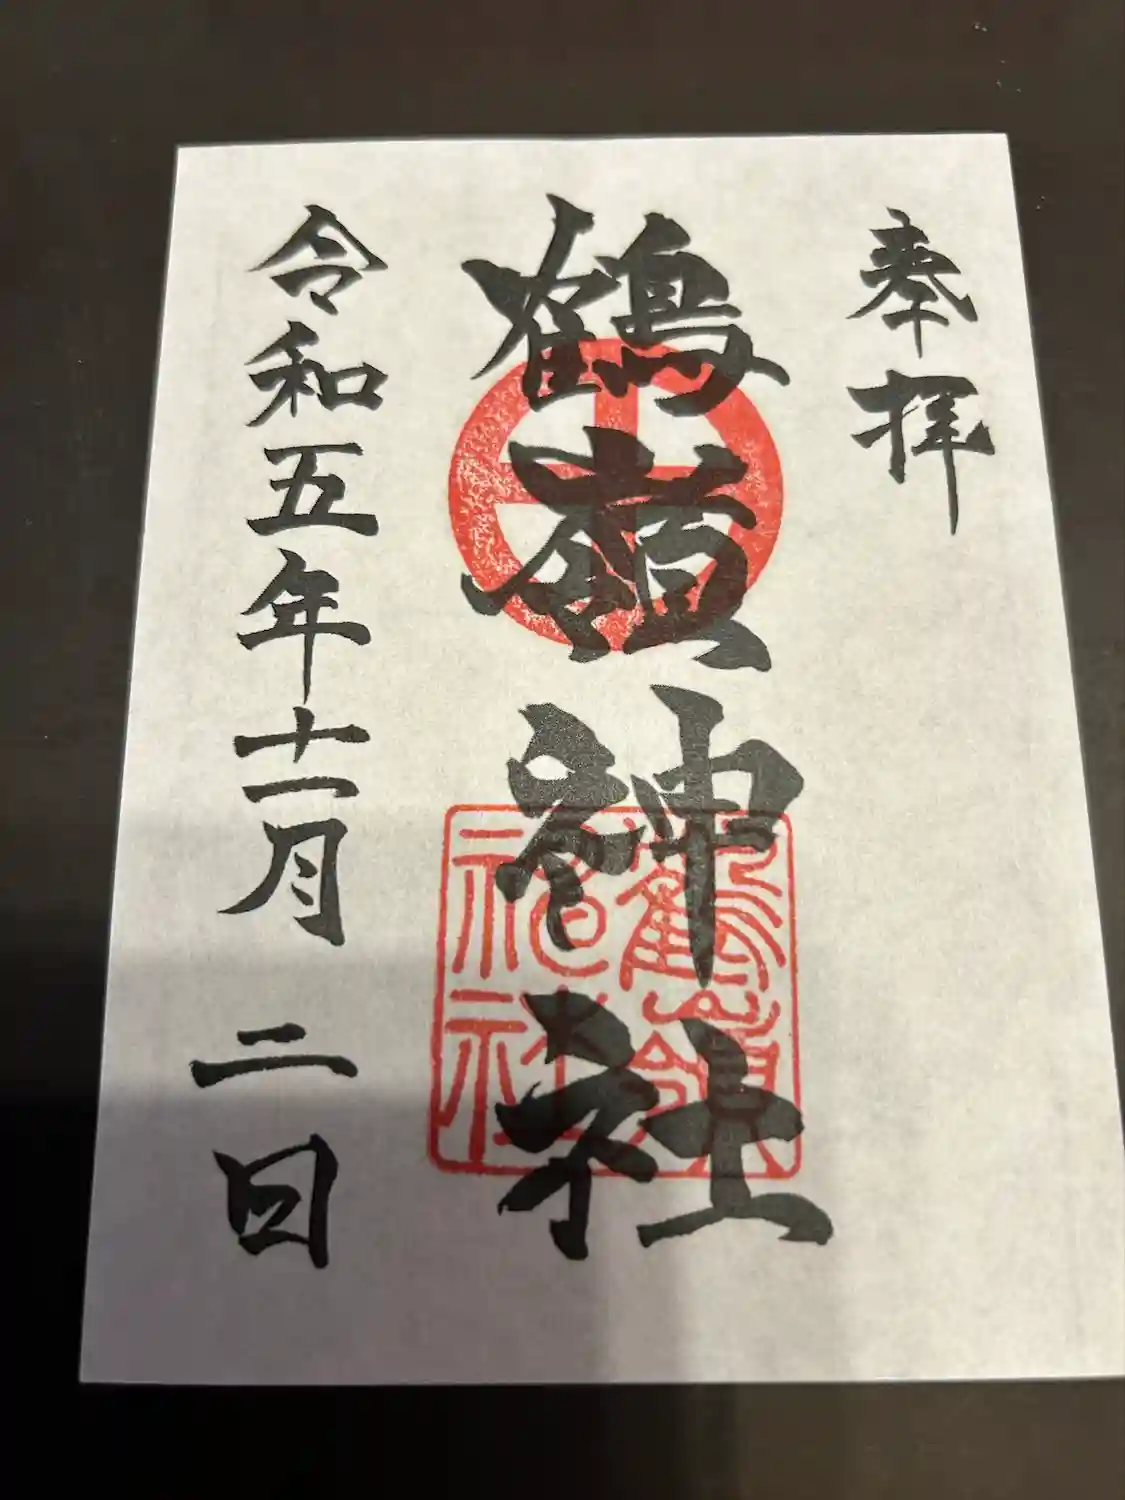 奉拝
鶴嶺神社
令和五年十一月二日
鶴嶺神社